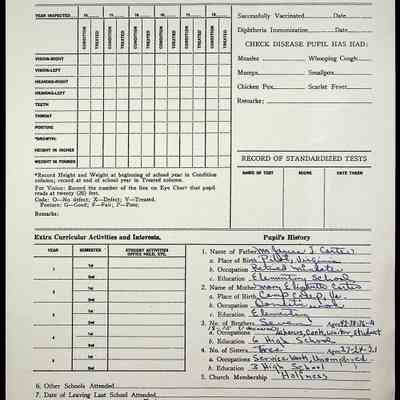 YEAR INSPECTED 19 19 19 19 19 19
CONDITION TREATED CONDITION TREATED CONDITION TREATED CONDITION TREATED CONDITION TREATED CONDITION TREATED
VISION-RIGHT
VISION-LEFT
HEARING-RIGHT
HEARING-LEFT
TEETH
THROAT
POSTURE
*GROWTH:
HEIGHT IN INCHES
WEIGHT IN POUNDS
*Record Height and Weight at beginning of school year in Condition
column; record at end of school year in Treated column.
For Vision: Record the number of the line on Eye Chart that pupil
reads at twenty (20) feet.
Code: O—No defect; X—Defect; V—Treated.
Posture: G—Good; F—Fair; P—Poor.
Remarks:
Successfully Vaccinated Date
Diphtheria Immunization Date
CHECK DISEASE PUPIL HAS HAD:
Measles Whooping Cough
Mumps Smallpox
Chicken Pox Scarlet Fever
Remarks:
RECORD OF STANDARDIZED TESTS
NAME OF TEST SCORE DATE TAKEN
Extra Curricular Activities and Interests.
YEAR SEMESTER STUDENT ACTIVITIES OFFICE HELD, ETC.
1 1st
2nd
2 1st
2nd
3 1st
2nd
4 1st
2nd
5 1st
2nd
6 1st
2nd
6. Other Schools Attended
7. Date of Leaving Last School Attended
Pupil's History
1. Name of Father James T. Carter
a. Place of Birth Pilot, Virginia
b. Occupation Retired Minister
c. Education Elementary School
2. Name of Mother Mary Elizabeth Carter
a. Place of Birth Va.
b. Occupation Domestic
c. Education Elementary
3. No. of Brothers Seven Ages
a. Occupations Cook,
b. Education 6 High School
4. No. of Sisters Three Ages 27-24-21
a. Occupations Service Work, Unemployed
b. Education 3 High School
5. Church Membership "Holiness"